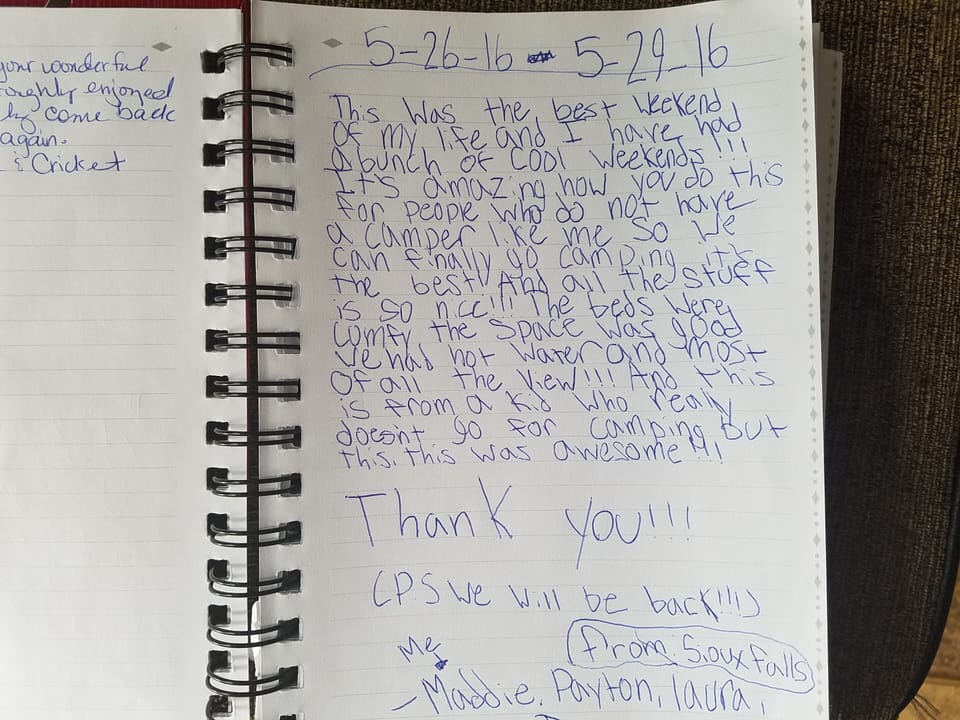 your wonderful
enjoyed
come back
again.
& Cricket
5-26-16 - 5-29-16
This was the best weekend
Of my life and I have had
a bunch of cool weekends!!!
It's amazing how you do this
for people who do not have
a camper like me so we
can finally go camping it's
the best! And all the stuff
is so nice!!! The beds were
comfy the space was good
we had hot water and most
of all the view!!! And this
is from a kid who realy
doesn't go for camping but
this, this was awesome!!!
Thank you!!!
(P.S we will be back!!!)
Me
from: Sioux falls
- Maddie, Payton, laura,